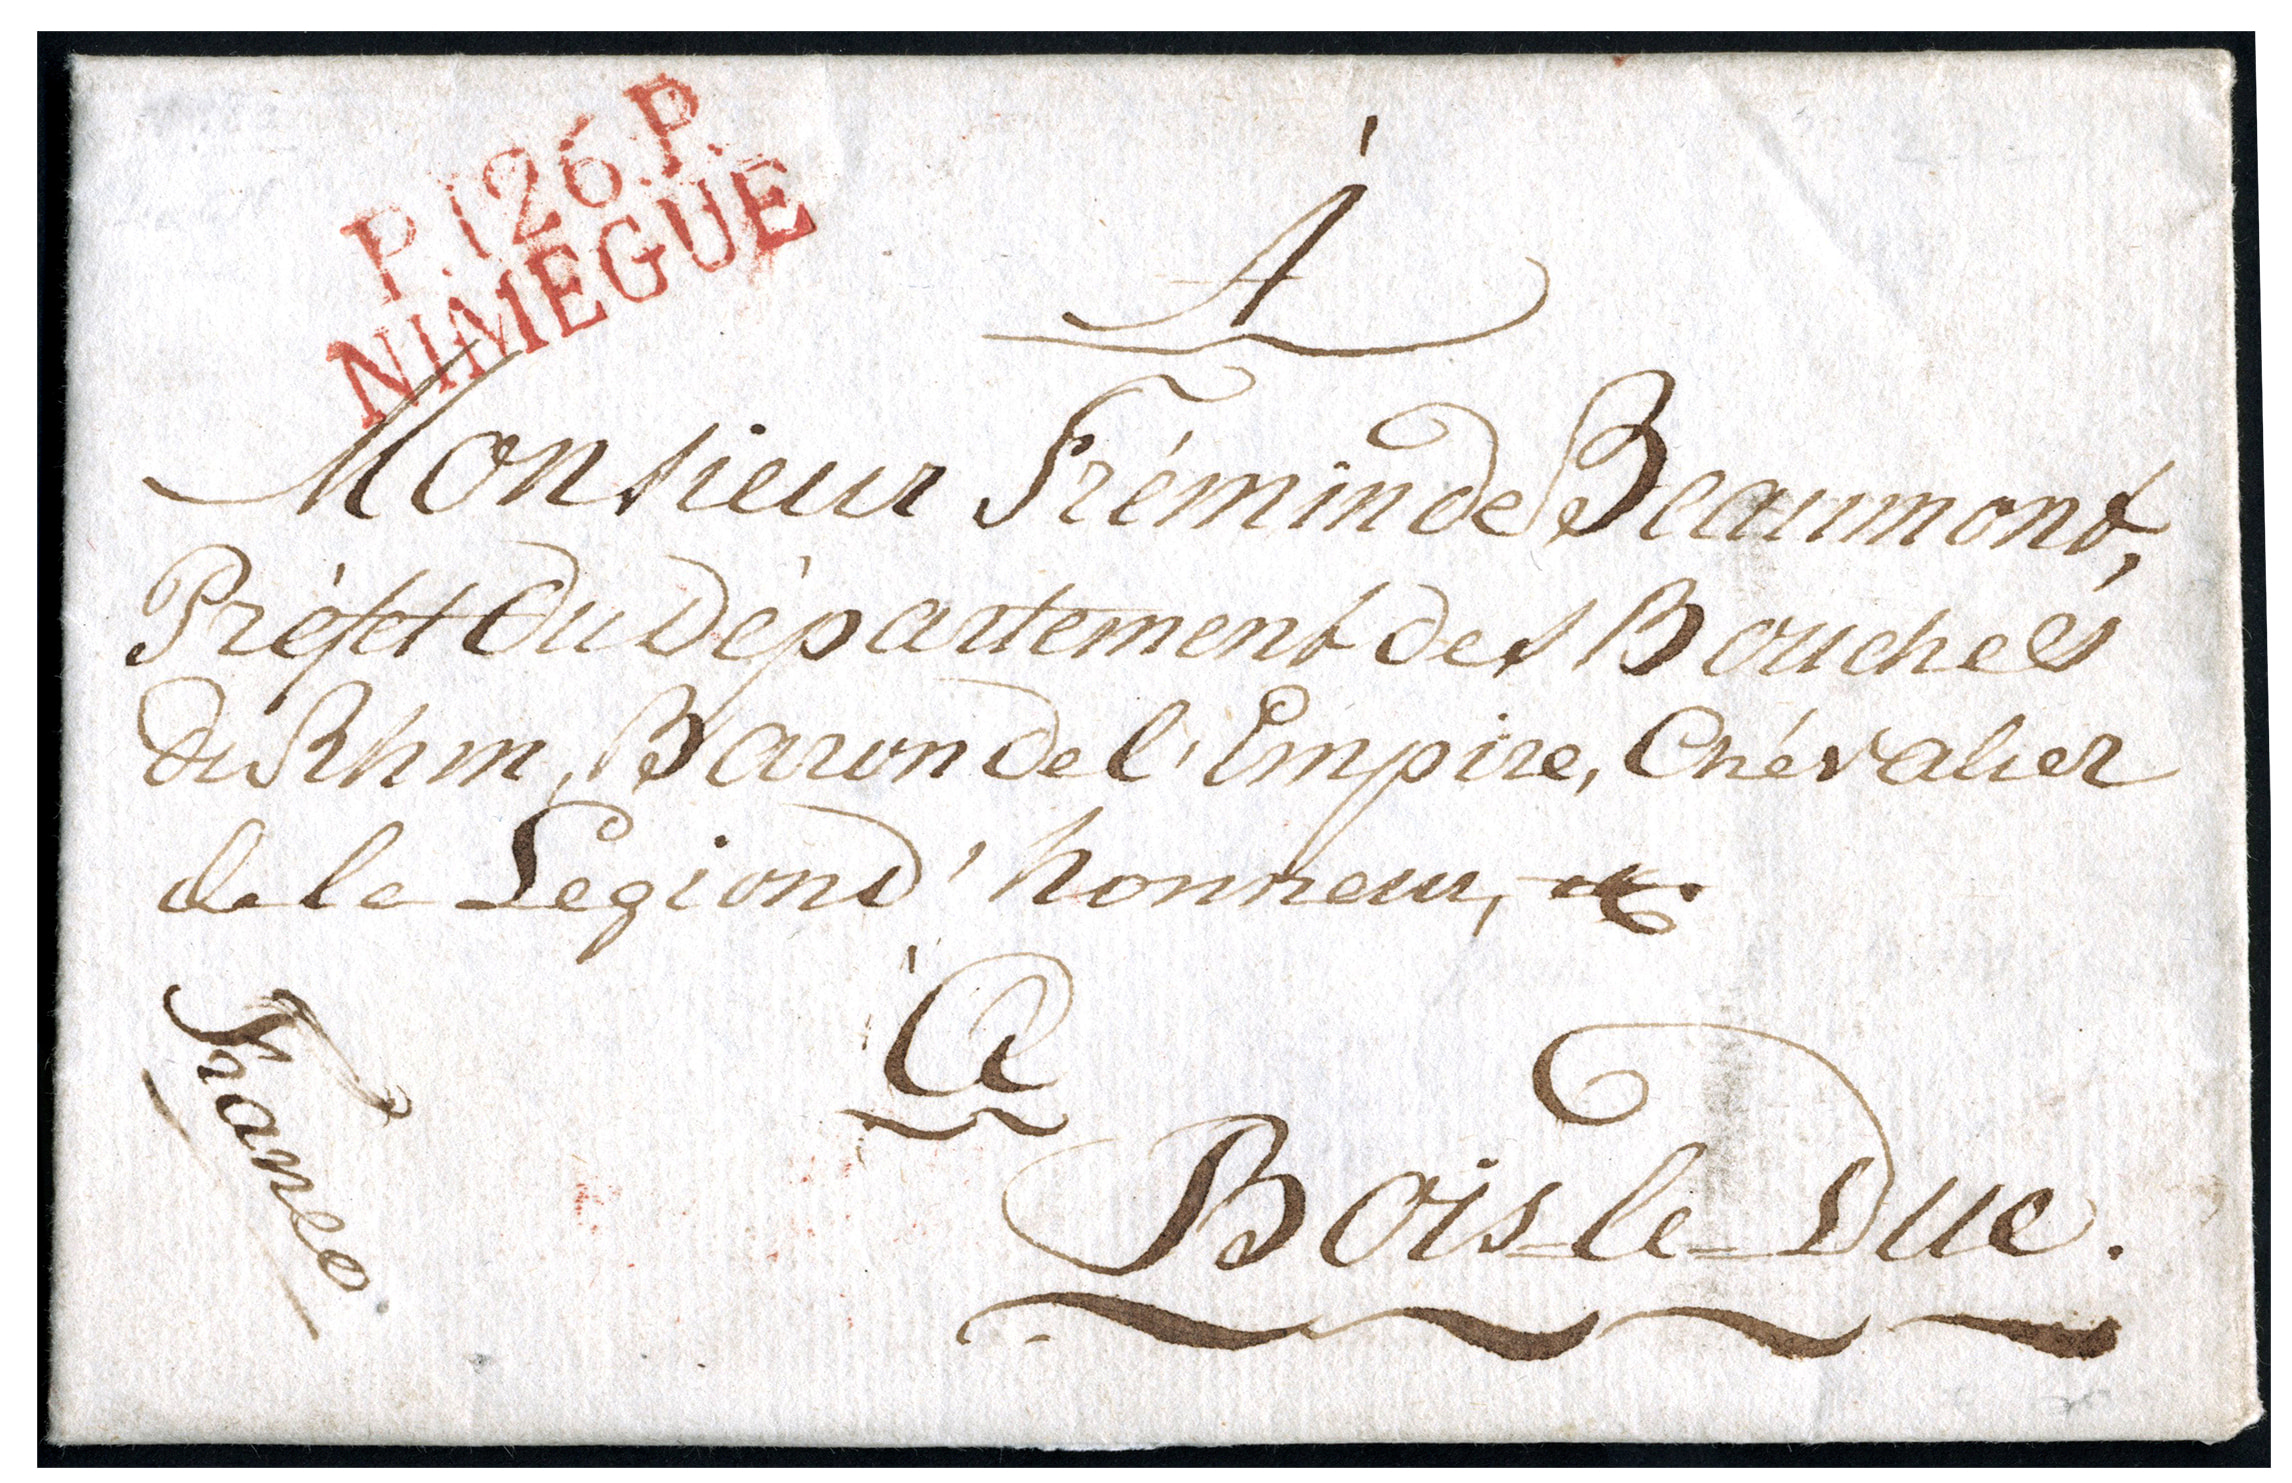 P.126.P.
NIMEGUE
À
Monsieur Frémin de Beaumont,
Préfet du Département des Bouches
du Rhin, Baron de l'Empire, Chévalier
de la Legion d'honneur, &c.
à
Bois-le-Duc.
Franco